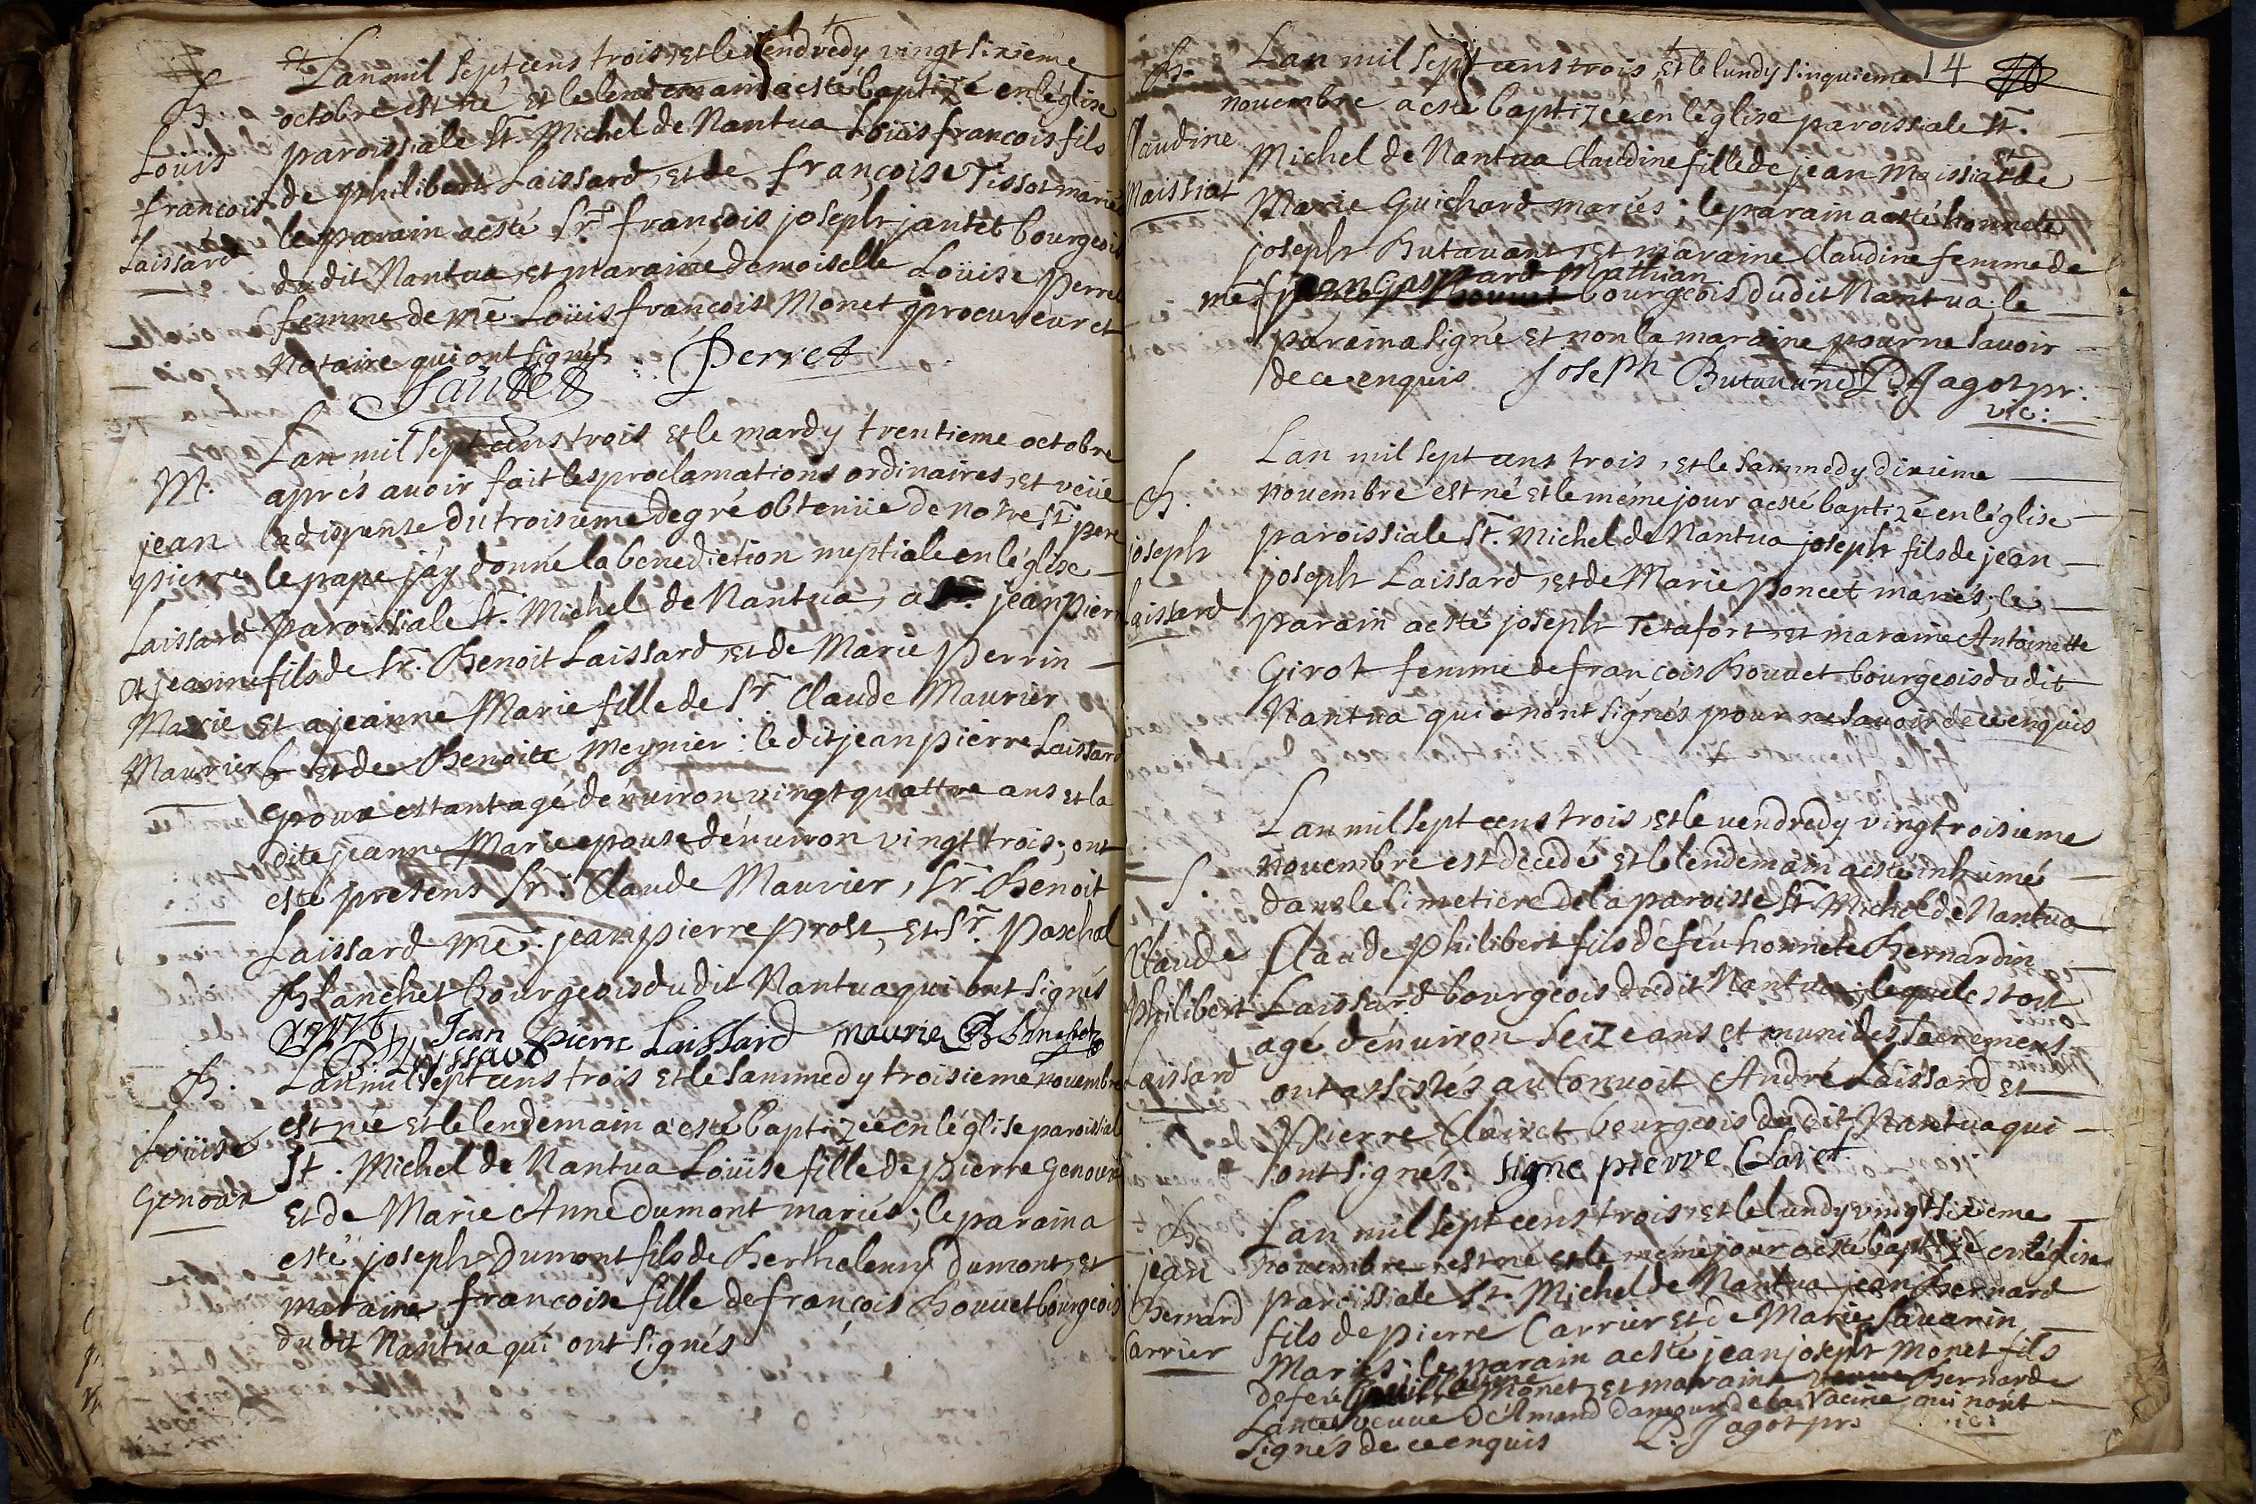 B
Loüis
francois
Laissard
Et Lan mil sept cens trois, Et le vendredy vingt sixieme
octobre est né Et le lendemain a esté baptizé en léglise
paroissiale St. Michel de Nantua Loüis francois fils
de philibert Laissard, Et de françoise Tissot mariés
le parain a esté Sr. françois joseph jantet bourgeois
du dit Nantua, Et maraine demoiselle Loüise perret
femme de me. Loüis françois Monet procureur et
Notaire qui ont signés
Jantet Perret
M.
jean
pierre
Laissard
Et jeanne
Marie
Maurier
Lan mil sept cens trois Et le mardy trentieme octobre
aprés avoir fait les proclamations ordinaires, Et veüe
la dispense du troisieme degré obtenüe de notre St. pere
le pape j'ay donné la benediction nuptiale en léglise
paroissiale St. Michel de Nantua, a jean pierre
fils de Sr. Benoit Laissard, Et de Marie Perrin
Et a jeanne Marie fille de Sr. Claude Maurier
Et de Benoite Meynier; le dit jean pierre Laissard
Epoux estant agé dénuiron vingt quattre ans Et la
dite jeanne Marie epouse dénuiron vingt trois; ont
esté presens Sr. Claude Maurier, Sr. Benoit
Laissard me. jean pierre Prost, Et Sr. Paschal
Blanchet bourgeois du dit Nantua qui ont signés
Prost Jean Pierre Laissard maurier Blanchet
B Laissard
B.
Loüise
Genoux
Lan mil sept cens trois Et le sammedy troisieme novembre
est née Et le lendemain a esté baptizée en léglise paroissiale
St. Michel de Nantua Loüise fille de pierre Genoux
Et de Marie Anne Dumont mariés; le parain a
esté joseph Dumont fils de Berthelemy Dumont, Et
maraine françoise fille de françois Bouvet bourgeois
du dit Nantua qui ont signés
14
B.
Claudine
Maissiat
Lan mil sept cens trois, Et le lundy sinquieme
novembre a esté baptizée en léglise paroissiale St.
Michel de Nantua Claudine fille de jean Maissiat Et de
Marie Guichard mariés; le parain a esté honnete
joseph Butavant, Et maraine Claudine femme de
me. jean Gaspard Mathian bourgeois du dit Nantua; le
parain a signé Et non la maraine pour ne savoir
de ce enquis Joseph Butavand P. Jagot pr.
vic:
B.
joseph
Laissard
Lan mil sept cens trois, Et le sammedy dixieme
novembre est né Et le même jour a esté baptizé en léglise
paroissiale St. Michel de Nantua joseph fils de jean
joseph Laissard, Et de Marie Poncet mariés; le
parain a esté joseph Tetafort, Et maraine Antoinette
Girot femme de françois Bouvet bourgeois du dit
Nantua qui n'ont signés pour ne savoir de ce enquis
S.
Claude
Philibert
Laissard
Lan mil sept cens trois, Et le vendredy vingtroisieme
novembre est decedé Et le lendemain a esté inhumé
dans le simetiere de la paroisse St. Michel de Nantua
Claude Philibert fils de feu honnete Bernardin
Laissard bourgeois du dit Nantua; lequel estoit
agé dénuiron seize ans Et muni des sacremens
ont assistés au Convoit André Laissard Et
Pierre Clairet bourgeois du dit Nantua qui
ont signés. signe pierre Clairet
B.
jean
Bernard
Carrier
Lan mil sept cens trois, Et le lundy vingt sixieme
novembre est né Et le même jour a esté baptizé en léglise
paroissiale St. Michel de Nantua jean Bernard
fils de Pierre Carrier Et de Marie Savarin
Mariés; le parain a esté jean joseph Monet fils
de feu Guillaume Monet, Et maraine Bernarde
veuve d'Amand de la qui n'ont
signés de ce enquis P. Jagot pr. vic: